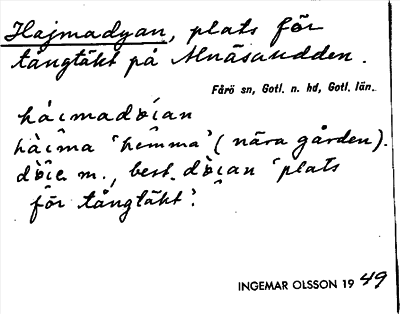 Hajmadyan, plats för
tångtäkt på Alnäsudden.
Fårö sn, Gotl. n. hd, Gotl. län.
hàimadǿian
hàima 'hemma' (nära gården).
dǿie m., best. dǿian 'plats
för tångtäkt'.
INGEMAR OLSSON 19 49